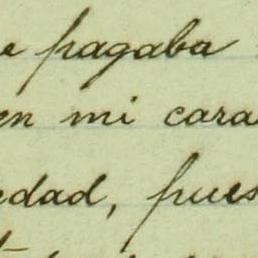 e pagaba
en mi cara
edad, pues